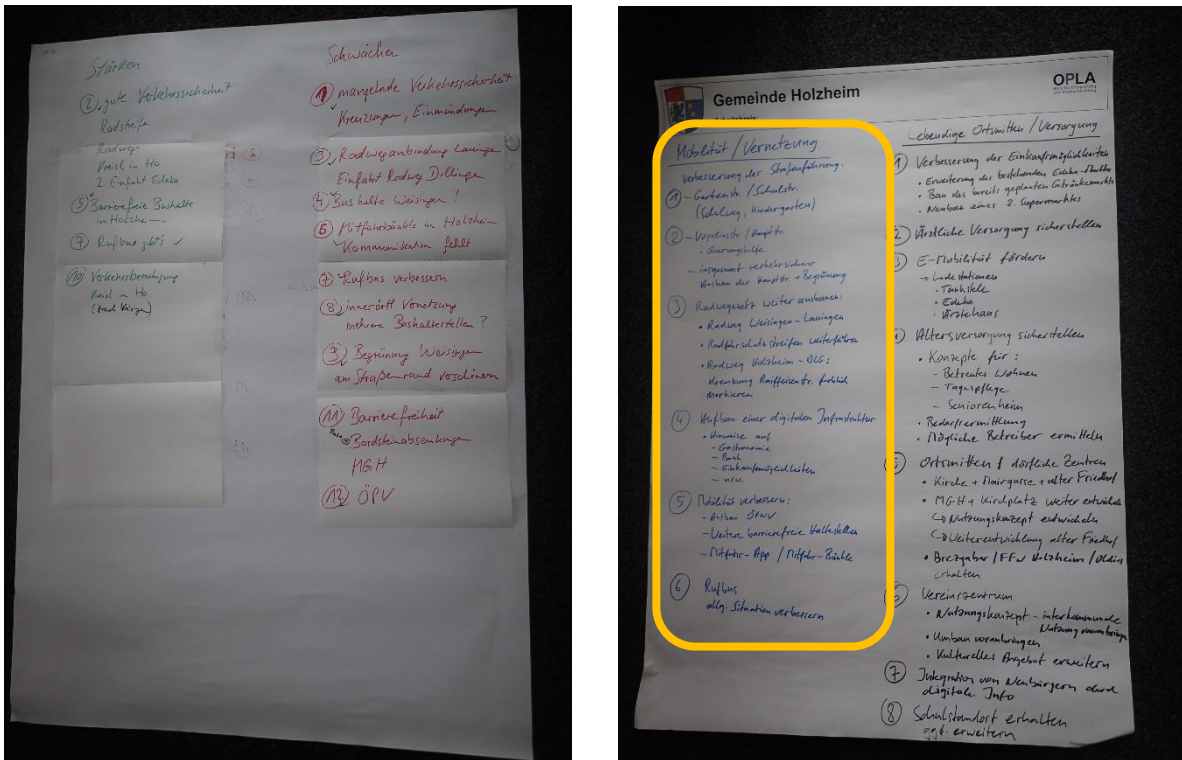 Stärken
② gute Verkehrssicherheit
Radstreife
Radwege
Kreisl in Ho
2. Einfahrt Edeka
⑤ Barrierefreie Bushalte
in Holzheim
⑦ Rufbus gibt's ✓
⑩ Verkehrsberuhigung
Kreisl in Ho
Schwächen
① mangelnde Verkehrssicherheit
Kreuzungen, Einmündungen
③ Radweganbindung Lauingen
Einfahrt Radweg Dillingen
④ Bushalte Weisingen!
⑥ Mitfahrbänkle in Holzheim
Kommunikation fehlt
⑦ Rufbus verbessern
⑧ innerörtl Vernetzung
mehrere Bushaltestellen?
⑨ Begrünung Weisingen
am Straßenrand verschönern
⑪ Barrierefreiheit
Bordsteinabsenkungen
MGH
⑫ ÖPV
Gemeinde Holzheim
OPLA
Mobilität / Vernetzung
Verbesserung der Straßenführung:
① - Gartenstr. / Schulstr.
(Schulweg, Kindergarten)
② - Hauptstr
• Querungshilfe
- insgesamt verkehrssicherer
Ausbau der Hauptstr. + Begrünung
③ Radwegenetz weiter ausbauen:
• Radweg Weisingen - Lauingen
• Radfahrschutzstreifen weiterführen
• Radweg Holzheim - DLG:
Kreuzung Raiffeisenstr. farblich
markieren
④ Aufbau einer digitalen Infrastruktur
• Hinweise auf
- Gastronomie
- Bank
- Einkaufsmöglichkeiten
- usw.
⑤ Mobilität verbessern:
- Ausbau ÖPNV
- Weitere barrierefreie Haltestellen
- Mitfahr-App / Mitfahr-Bänkle
⑥ Rufbus
allg. Situation verbessern
Lebendige Ortsmitten / Versorgung
① Verbesserung der Einkaufsmöglichkeiten
• Erweiterung des bestehenden Edeka-Marktes
• Bau des bereits geplanten Getränkemarkts
• Neubau eines 2. Supermarktes
② Ärztliche Versorgung sicherstellen
③ E-Mobilität fördern
→ Ladestationen
• Tankstelle
• Edeka
• Ärztehaus
④ Altersversorgung sicherstellen
• Konzepte für:
- Betreutes Wohnen
- Tagespflege
- Seniorenheim
• Bedarfsermittlung
• Mögliche Betreiber ermitteln
⑤ Ortsmitten / dörfliche Zentren
• Kirche + Maigasse + alter Friedhof
• MGH + Kirchplatz weiter entwickeln
↪ Nutzungskonzept entwickeln
↪ Weiterentwicklung alter Friedhof
• / FFW Holzheim /
erhalten
⑥ Vereinszentrum
• Nutzungskonzept - interkommunale
Nutzung voranbringen
• Umbau voranbringen
• Kulturelles Angebot erweitern
⑦ Integration von Neubürgern durch
digitale Info
⑧ Schulstandort erhalten
ggf. erweitern